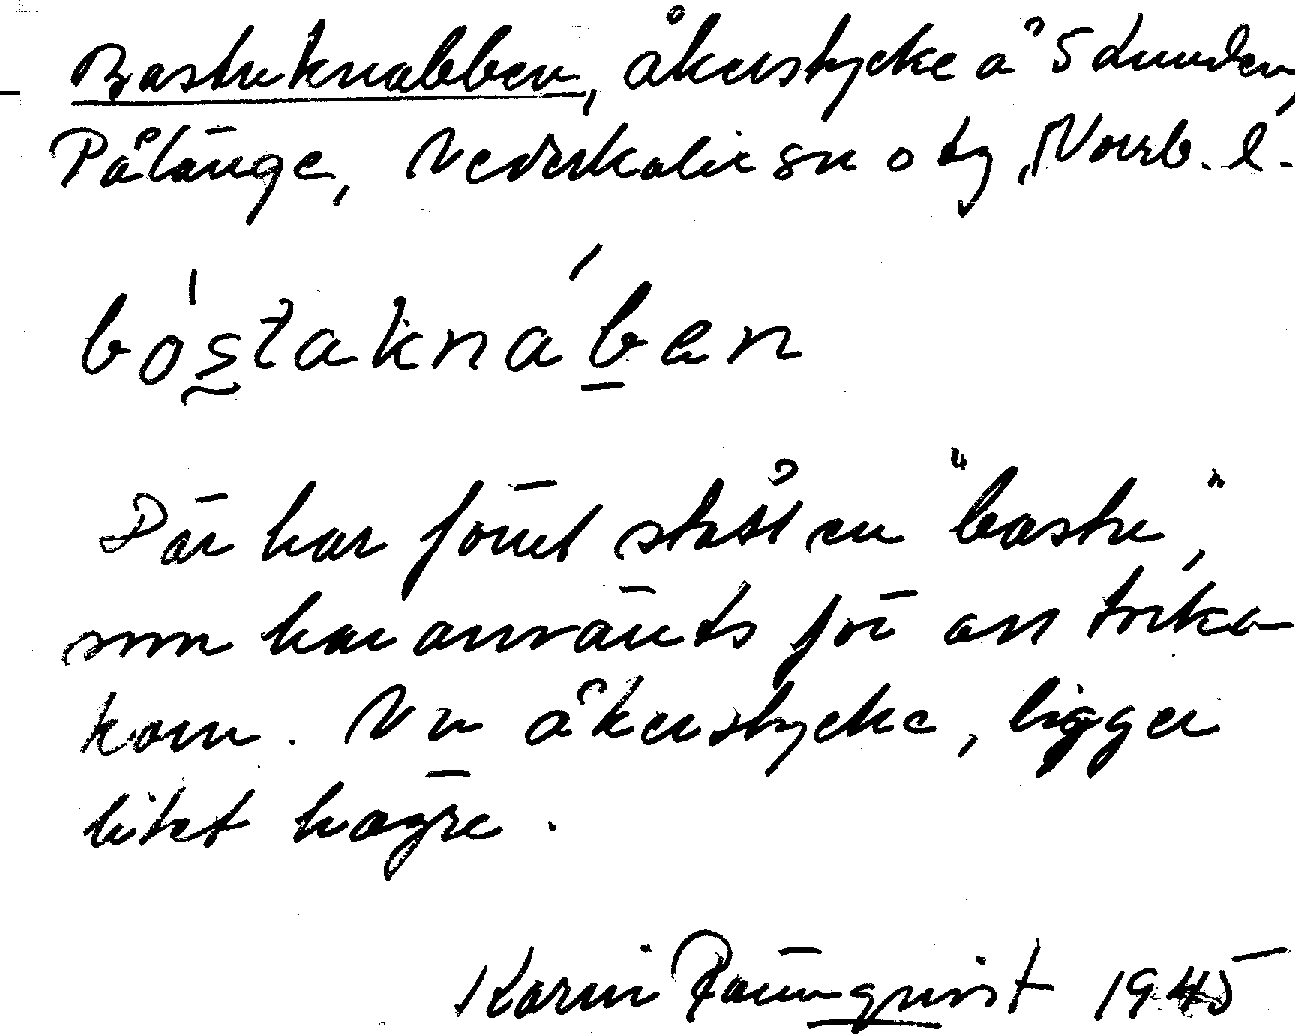 Bastuknabben, åkerstycke å Slunden,
Pålänge, Nederkalix sn o tg, Norrb. l.
bòstaknáben
Där har förut stått en "bastu",
som har använts för att torka
korn. Nu åkerstycke, ligger
litet högre.
Karin 1945